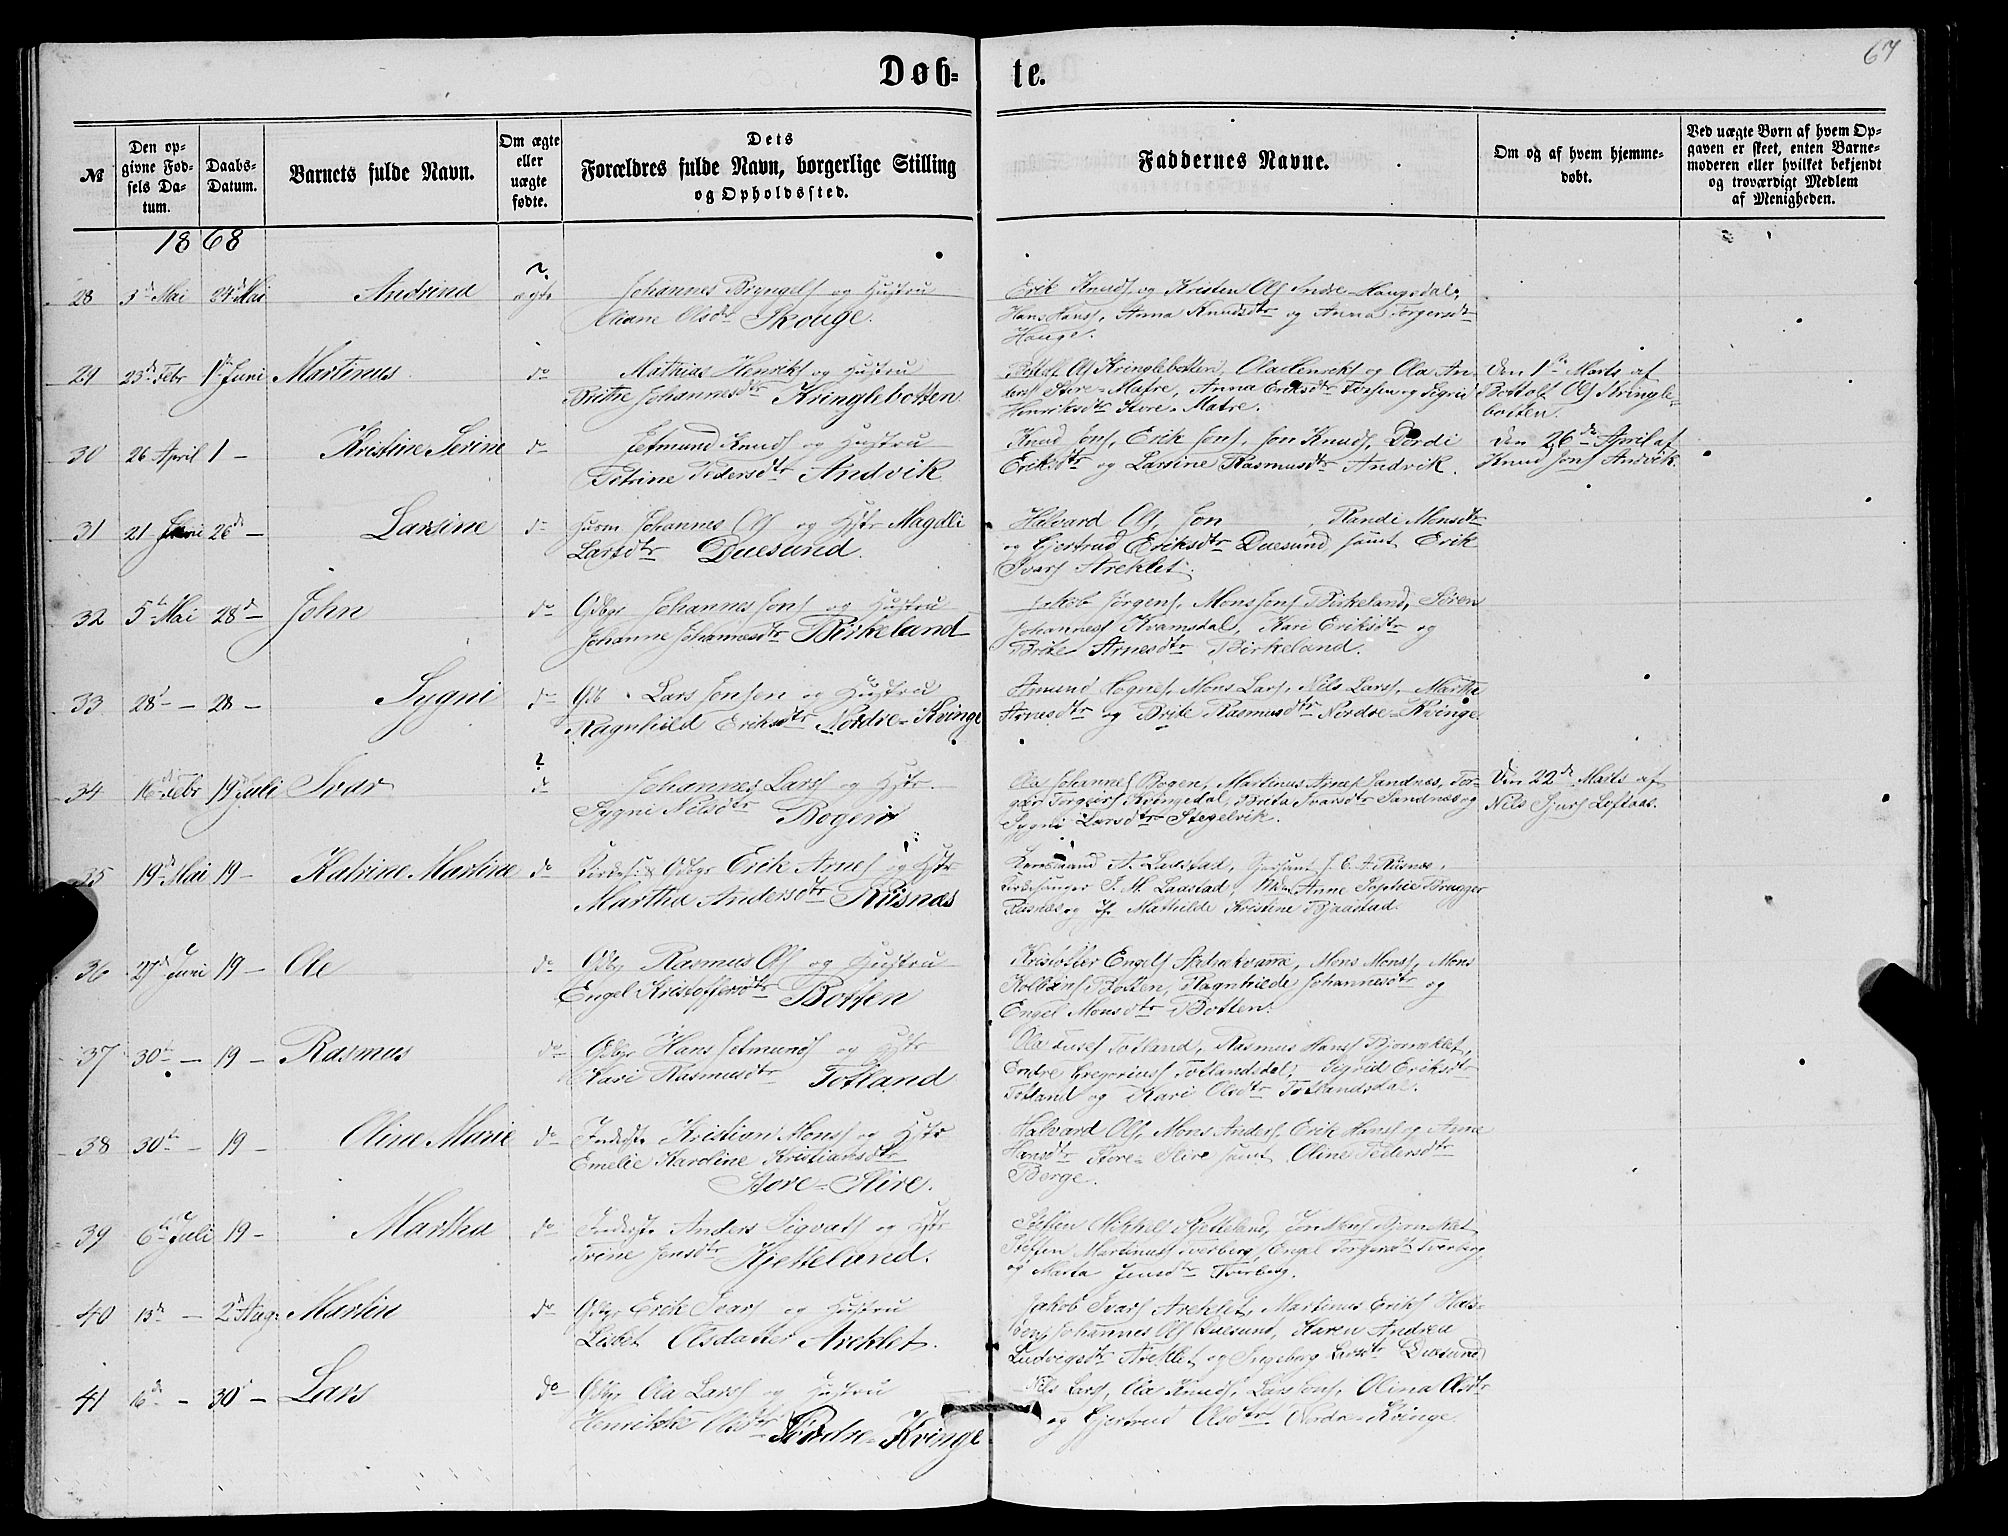 67
Døb-te.
№
Den op-
givne Fød-
sels Da-
tum.
Daabs-
Datum.
Barnets fulde Navn.
Om ægte
eller
uægte
fødte.
Dets
Forældres fulde Navn, borgerlige Stilling
og Opholdssted.
Faddernes Navne.
Om og af hvem hjemme-
døbt.
Ved uægte Børn af hvem Op-
gaven er skeet, enten Barne-
moderen eller hvilket bekjendt
og troværdigt Medlem
af Menigheden.
1868
28 3d Mai 24d Mai Andrina ægte Johannes Brengels og Hustru
Olsdtr Skouge.
Erik Knuds og Kristen Ols Indre-Haugsdal,
Hans Hans, Anna Knudsdtr og Anna Torgersdtr
Hauge.
29 23d Febr 1ste Juni Martinus do Mathias Henriks og Hustru
Brithe Johannesdtr Kringlebotten
Ols Kringlebotten, Ola Henriks og Ola An-
ders Store-Matre, Anna Eriksdtr og Sigrid
Henriksdtr Store-Matre.
Den 1ste Marts af
Bottolf Ols Kringle-
botten.
30 26 April 1 - Kristine Serine do Jetmund Knuds og Hustru
Petrine Pedersdtr Andvik
Knud Jons, Erik Jons, Jon Knuds, Dordi
Eriksdtr og Larsine Rasmusdtr Andvik.
Den 26de April af
Knud Jons Andvik.
31 21 Juni 26de - Larsine do Husm Johannes Ols og Hstr Magdli
Larsdtr Duesund.
Halvard Ols, Jon , Randi Monsdtr
og Gjertrud Eriksdtr Duesund samt Erik
Ivars Areklet.
32 5te Mai 28d - John do Gdbr Johannes Jons og Hustru
Johanne Johannesdtr Birkeland
Jakob Jørgens, Mons Jons Birkeland, Søren
Johannes Kvamsdal, Kari Eriksdtr og
Brite Arnesdtr Birkeland.
33 28d - 28 - Sygni do Gdb Lars Jonsen og Hustru
Ragnhild Eriksdtr Nordre-Kvinge
Amund Hognes, Mons Lars, Nils Lars, Martha
Arnesdtr og Brite Rasmusdtr Nordre-Kvinge.
34 16de Febr 19d Juli Ivar do Johannes Lars og Hstr.
Sygni Nilsdtr Bogen
Ola Johannes Bogen, Martinus Arnes Sandnes, Tor-
ger Torgers Kvingedal, Brita Ivarsdtr Sandnes og
Sygni Larsdtr Stegelvik.
Den 22de Marts af
Nils Sjurs Loftaas.
35 19de Mai 19 - Katrine Martine do Gdbr Erik Arnes og Hstr
Martha Andersdtr Risnæs
Ladstad, Risnæs,
Kirkesanger J. M. Ladstad, Anne Sophie Brugger
Risnæs og Mathilde Kristine Bjaastad.
36 27d Juni 19 - Ole do Gdbr Rasmus Ols og Hustru
Engel Kristoffersdtr Botten
Kristoffer Engels Andrekvamme, Mons Mons, Mons
Kolbeins Botten, Ragnhilde Johannesdtr og
Engel Monsdtr Botten.
37 30te - 19 - Rasmus do Gdbr Hans Jetmunds og Hstr
Kari Rasmusdtr Totland
Ola Totland, Rasmus Hans Bjørneklet,
Endre Gregorius Totlandsdal, Sigrid Eriksdtr
Totland og Kari Olsdtr Totlandsdal.
38 30te - 19 - Oline Marie do Inderste Kristian Mons og Hstr
Emelie Karoline Kristiansdtr
Store-Hire.
Halvard Ols, Mons Anders, Erik Hans og Anne
Hansdtr Store-Hire samt Oline Pedersdtr
Berge.
39 6te Juli 19 - Martha do Inderste Anders Sigvats og Hstr
Trine Jensdtr Kjetteland.
Steffen Mikkels Kjetteland, Jon Jons Bjørneklet
Steffen Martinus Tverberg, Engel Torgersdtr Tverberg,
og Marta Jensdtr Tverberg.
40 13de - 2d Aug: Martin do Gdbr Erik Ivars og Hustru
Lisbet Olsdatter Areklet.
Jakob Ivars Areklet, Martinus Eriks Hals-
Johannes Ols Duesund, Karen Andrea
Ludvigsdtr Areklet og Ingeborg Larsdtr Duesund
41 16de - 30d - Lars do Gdbr Ola Lars og Hustru
Henrikke Olsdtr Nordre-Kvinge
Nils Lars, Ola Knuds, Lars Jons, Olina Olsdtr
og Gjertrud Olsdtr Nordre-Kvinge.